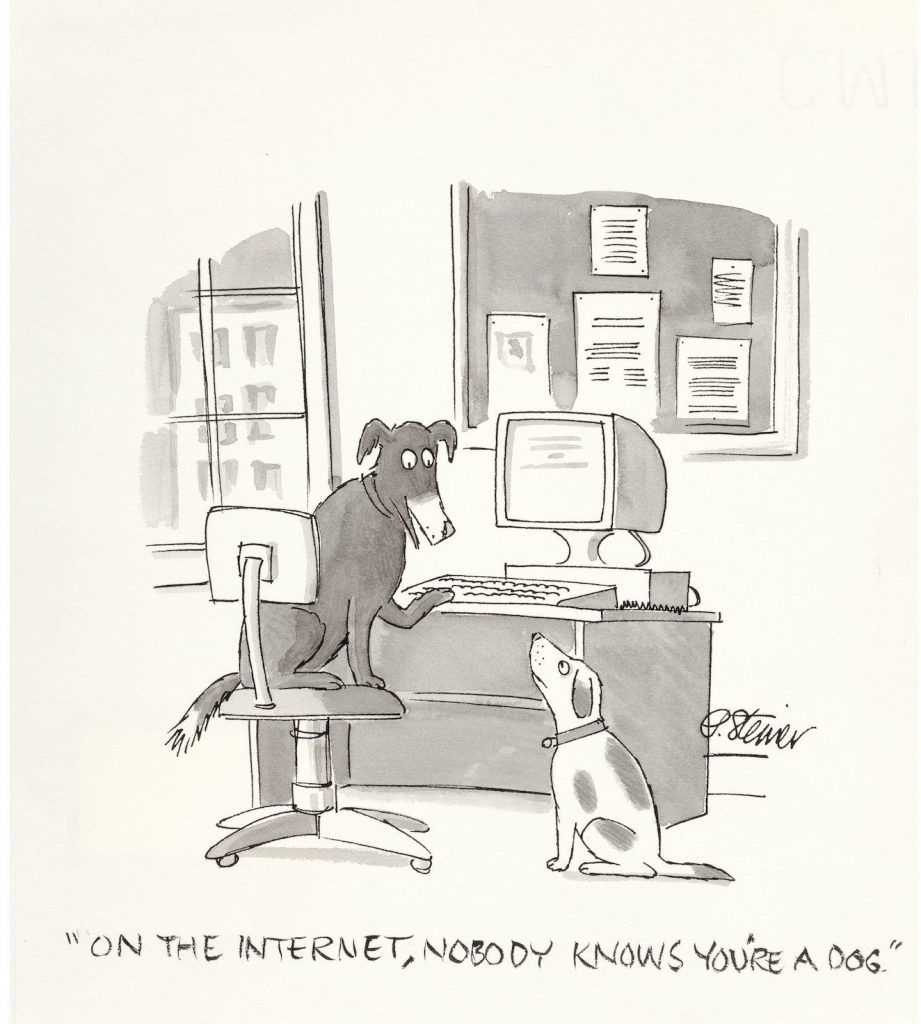 P. Steiner
"ON THE INTERNET, NOBODY KNOWS YOU'RE A DOG."